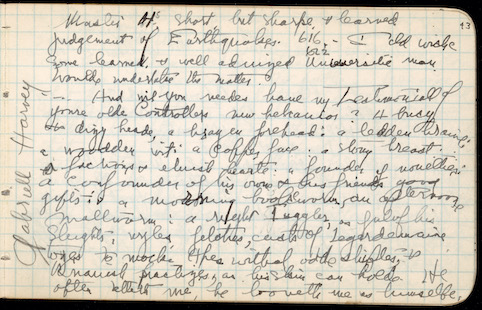 13
Master H. short but sharpe, & learned
judgement of Earthquakes. 616. - I cld wishe
some learned, & well advized Universitie man
woulde undertake the matter.
- And wil you needes have my Testimoniall of
youre olde Controllers new behaviour? A busy
& dizy heade, a brazen forehead: a ledden braine:
a wodden wit: a Copper face: a stony breast:
a factious & elvish hearte: a founder of novelties:
a confounder of his owne & his friends good
gifts: a morning bookworm, an afternoone
maltworm: a right Juggler, as ful of his
sleights, wyles, fetches, casts of Legerdemaine
toyes to mocke Apes withal odde shiftes, &
knavish practizes, as his skin can holde. He
often telleth me, he looveth me as himselfe,
Gabriell Harvey